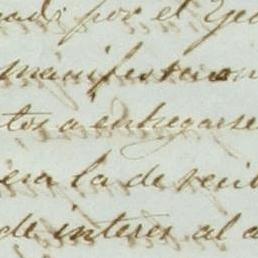 por el
manifestaron
tos a entregarse
era la de recib
de interes al a